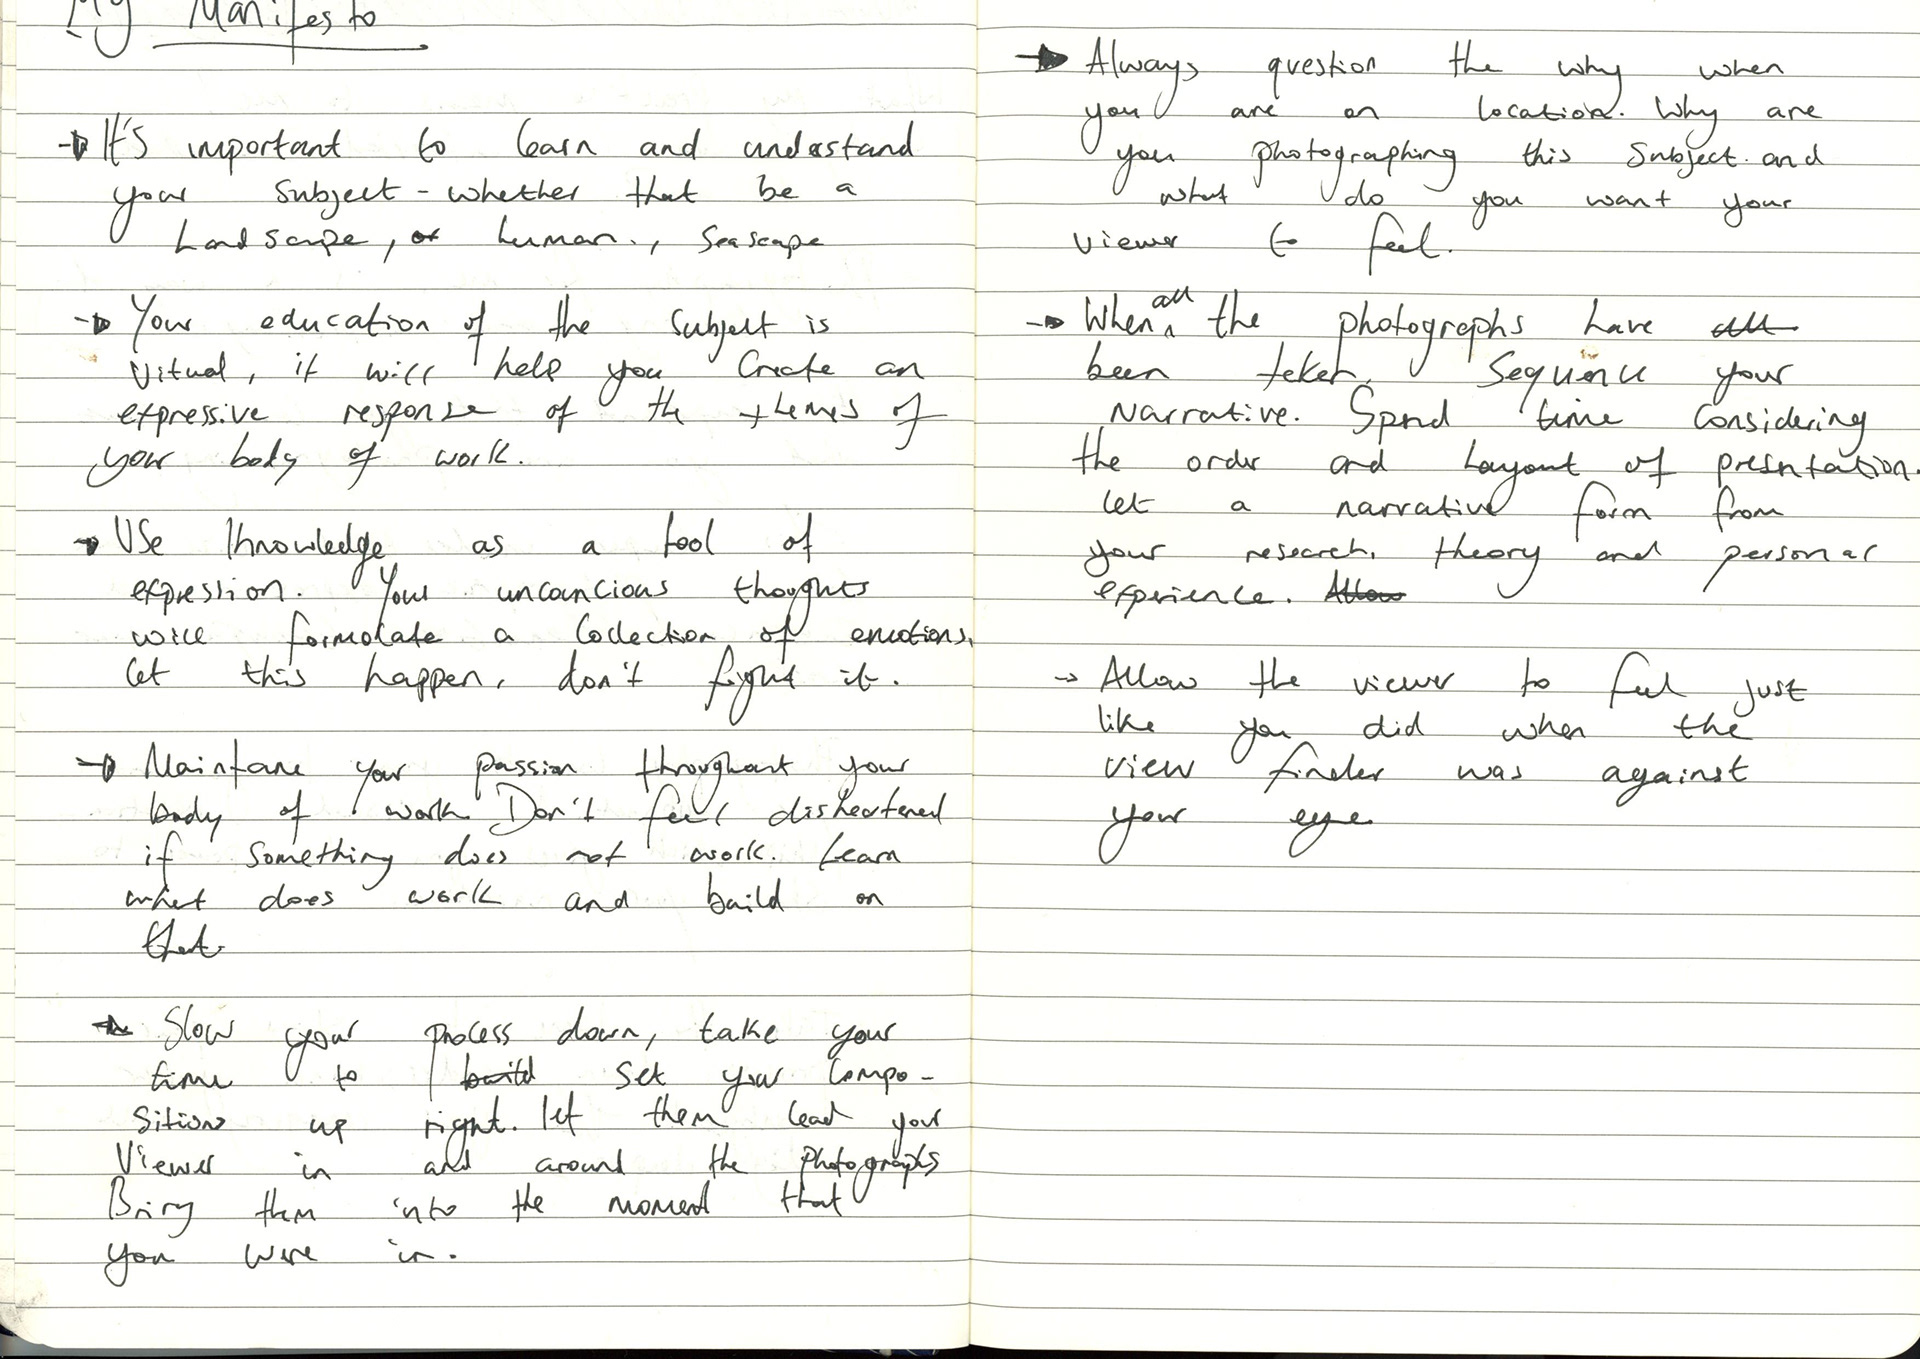 My Manifesto
→ It's important to learn and understand
your subject - whether that be a
Landscape, or human., Seascape
→ Your education of the subject is
Vitual, it will help you Create an
expressive response of the themes of
your body of work.
→ Use Knowledge as a tool of
expression. Your unconcious thoughts
will formolate a Collection of emotions.
let this happen, don't fight it.
→ Maintane your passion throughout your
body of work Don't feel disheartened
if something does not work. Learn
what does work and build on
that.
→ Slow your process down, take your
time to build set your Compo-
sitions up right. let them lead your
Viewer in and around the photographs
Bring them into the moment that
you were in.
→ Always question the why when
you are on location. Why are
you photographing this Subject and
what do you want your
viewer to feel.
→ When all the photographs have all
been taken, Sequence your
Narrative. Spend time Considering
the order and Layout of presentation.
let a narrative form from
your research, theory and personal
experience. Allow
→ Allow the viewer to feel just
like you did when the
view finder was against
your eye